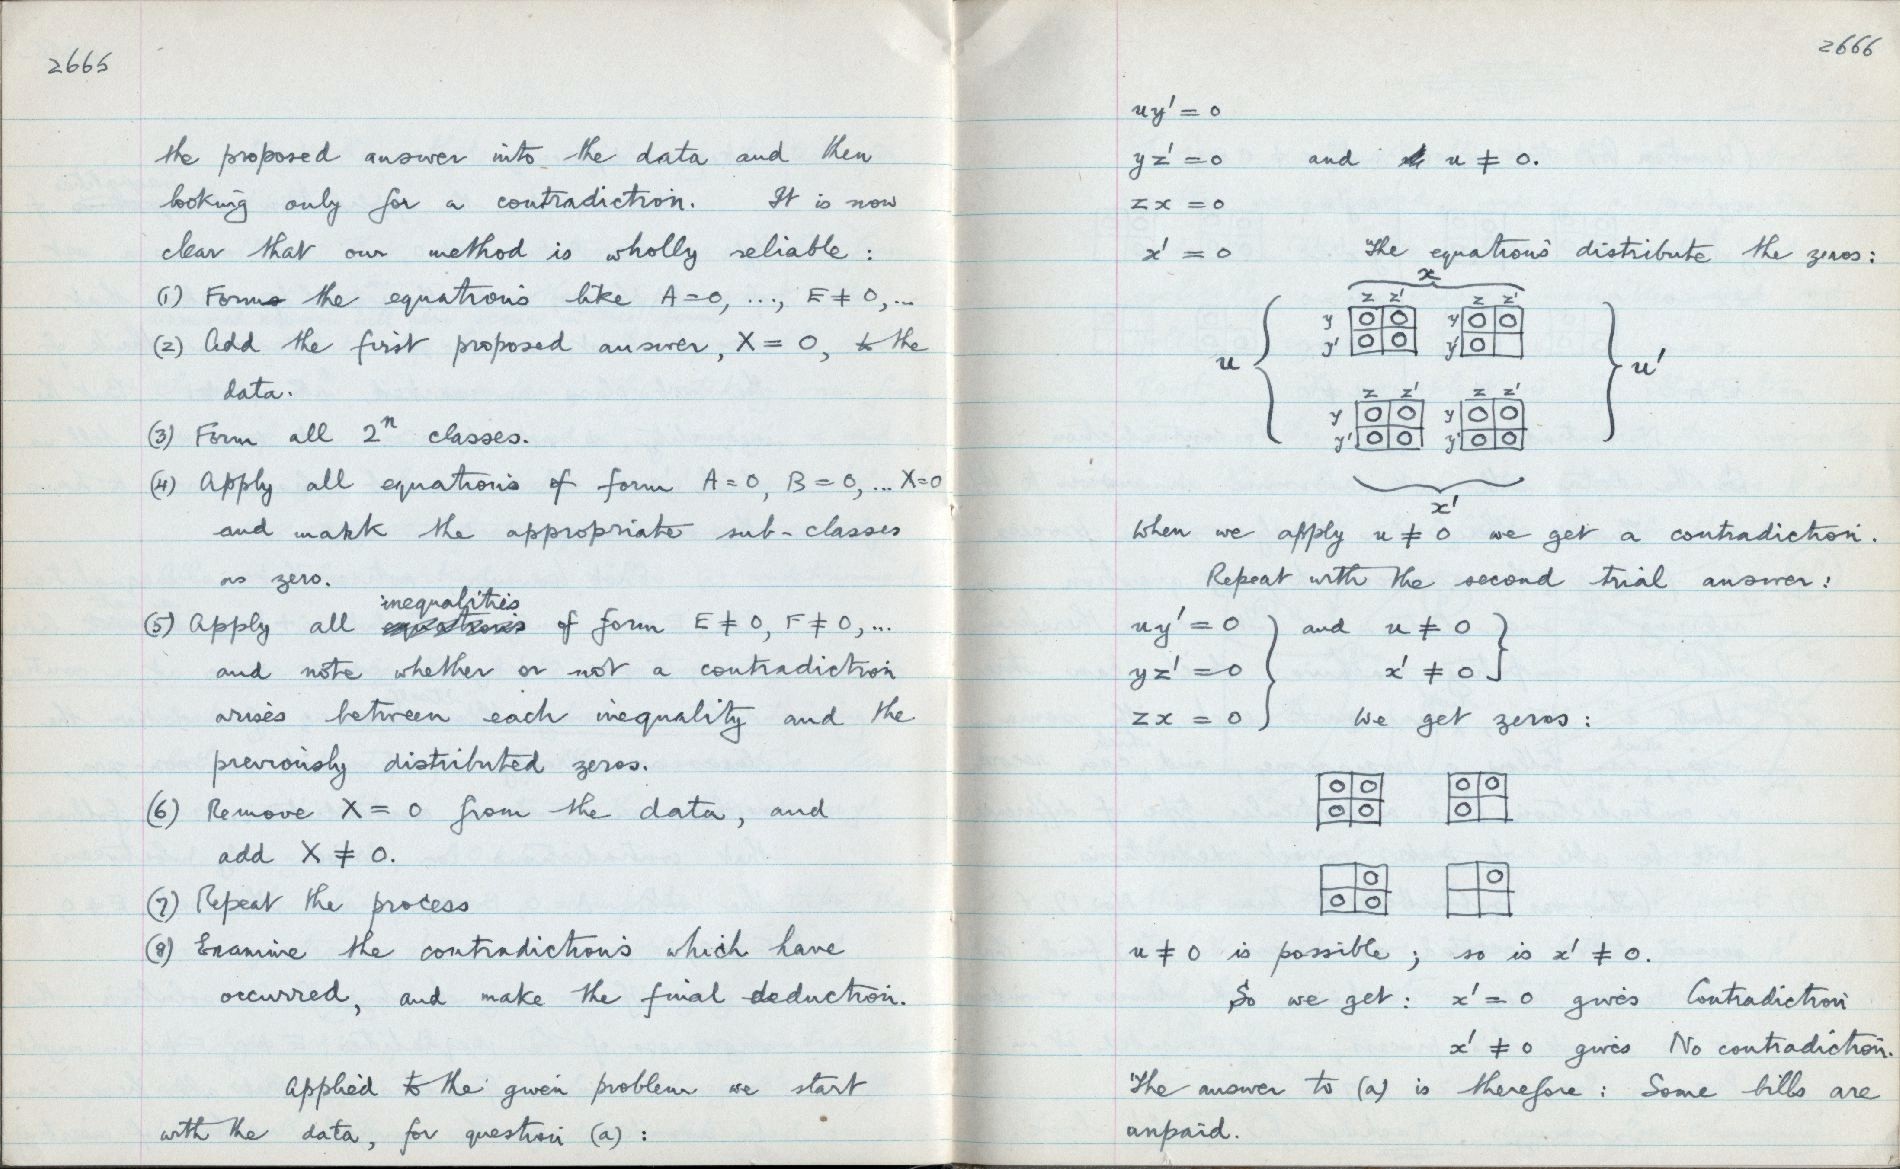 2665
the proposed answer into the data and then
looking only for a contradiction. It is now
clear that our method is wholly reliable :
(1) Form the equations like A=0, ..., E≠0,...
(2) Add the first proposed answer, X = 0, to the
data.
(3) Form all 2ⁿ classes.
(4) Apply all equations of form A=0, B=0,... X=0
and mark the appropriate sub-classes
as zero.
inequalities
(5) Apply all equations of form E≠0, F≠0,...
and note whether or not a contradiction
arises between each inequality and the
previously distributed zeros.
(6) Remove X = 0 from the data, and
add X ≠ 0.
(7) Repeat the process
(8) Examine the contradictions which have
occurred, and make the final deduction.
Applied to the given problem we start
with the data, for question (a) :
2666
uy' = 0
yz' = 0 and u ≠ 0.
zx = 0
x' = 0 The equations distribute the zeros:
x
z z' z z'
y 0 0 y 0 0
y' 0 0 y' 0
u u'
z z' z z'
y 0 0 y 0 0
y' 0 0 y' 0 0
x'
When we apply u ≠ 0 we get a contradiction.
Repeat with the second trial answer:
uy' = 0 } and u ≠ 0 }
yz' = 0 x' ≠ 0
zx = 0 We get zeros :
0 0 0 0
0 0 0
0 0
0 0
u ≠ 0 is possible ; so is x' ≠ 0.
So we get : x' = 0 gives Contradiction
x' ≠ 0 gives No contradiction.
The answer to (a) is therefore : Some bills are
unpaid.